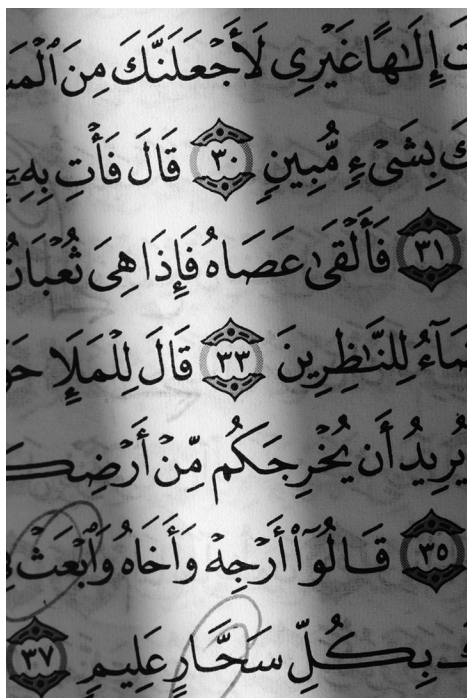 إِلَٰهًا غَيْرِى لَأَجْعَلَنَّكَ مِنَ
بِشَىْءٍ مُّبِينٍ ٣٠ قَالَ فَأْتِ بِهِۦٓ
٣١ فَأَلْقَىٰ عَصَاهُ فَإِذَا هِىَ ثُعْبَانٌ
لِلنَّـٰظِرِينَ ٣٣ قَالَ لِلْمَلَإِ
يُرِيدُ أَن يُخْرِجَكُم مِّنْ أَرْضِكُ
٣٥ قَالُوٓا۟ أَرْجِهْ وَأَخَاهُ وَٱبْعَثْ
بِكُلِّ سَحَّارٍ عَلِيمٍ ٣٧